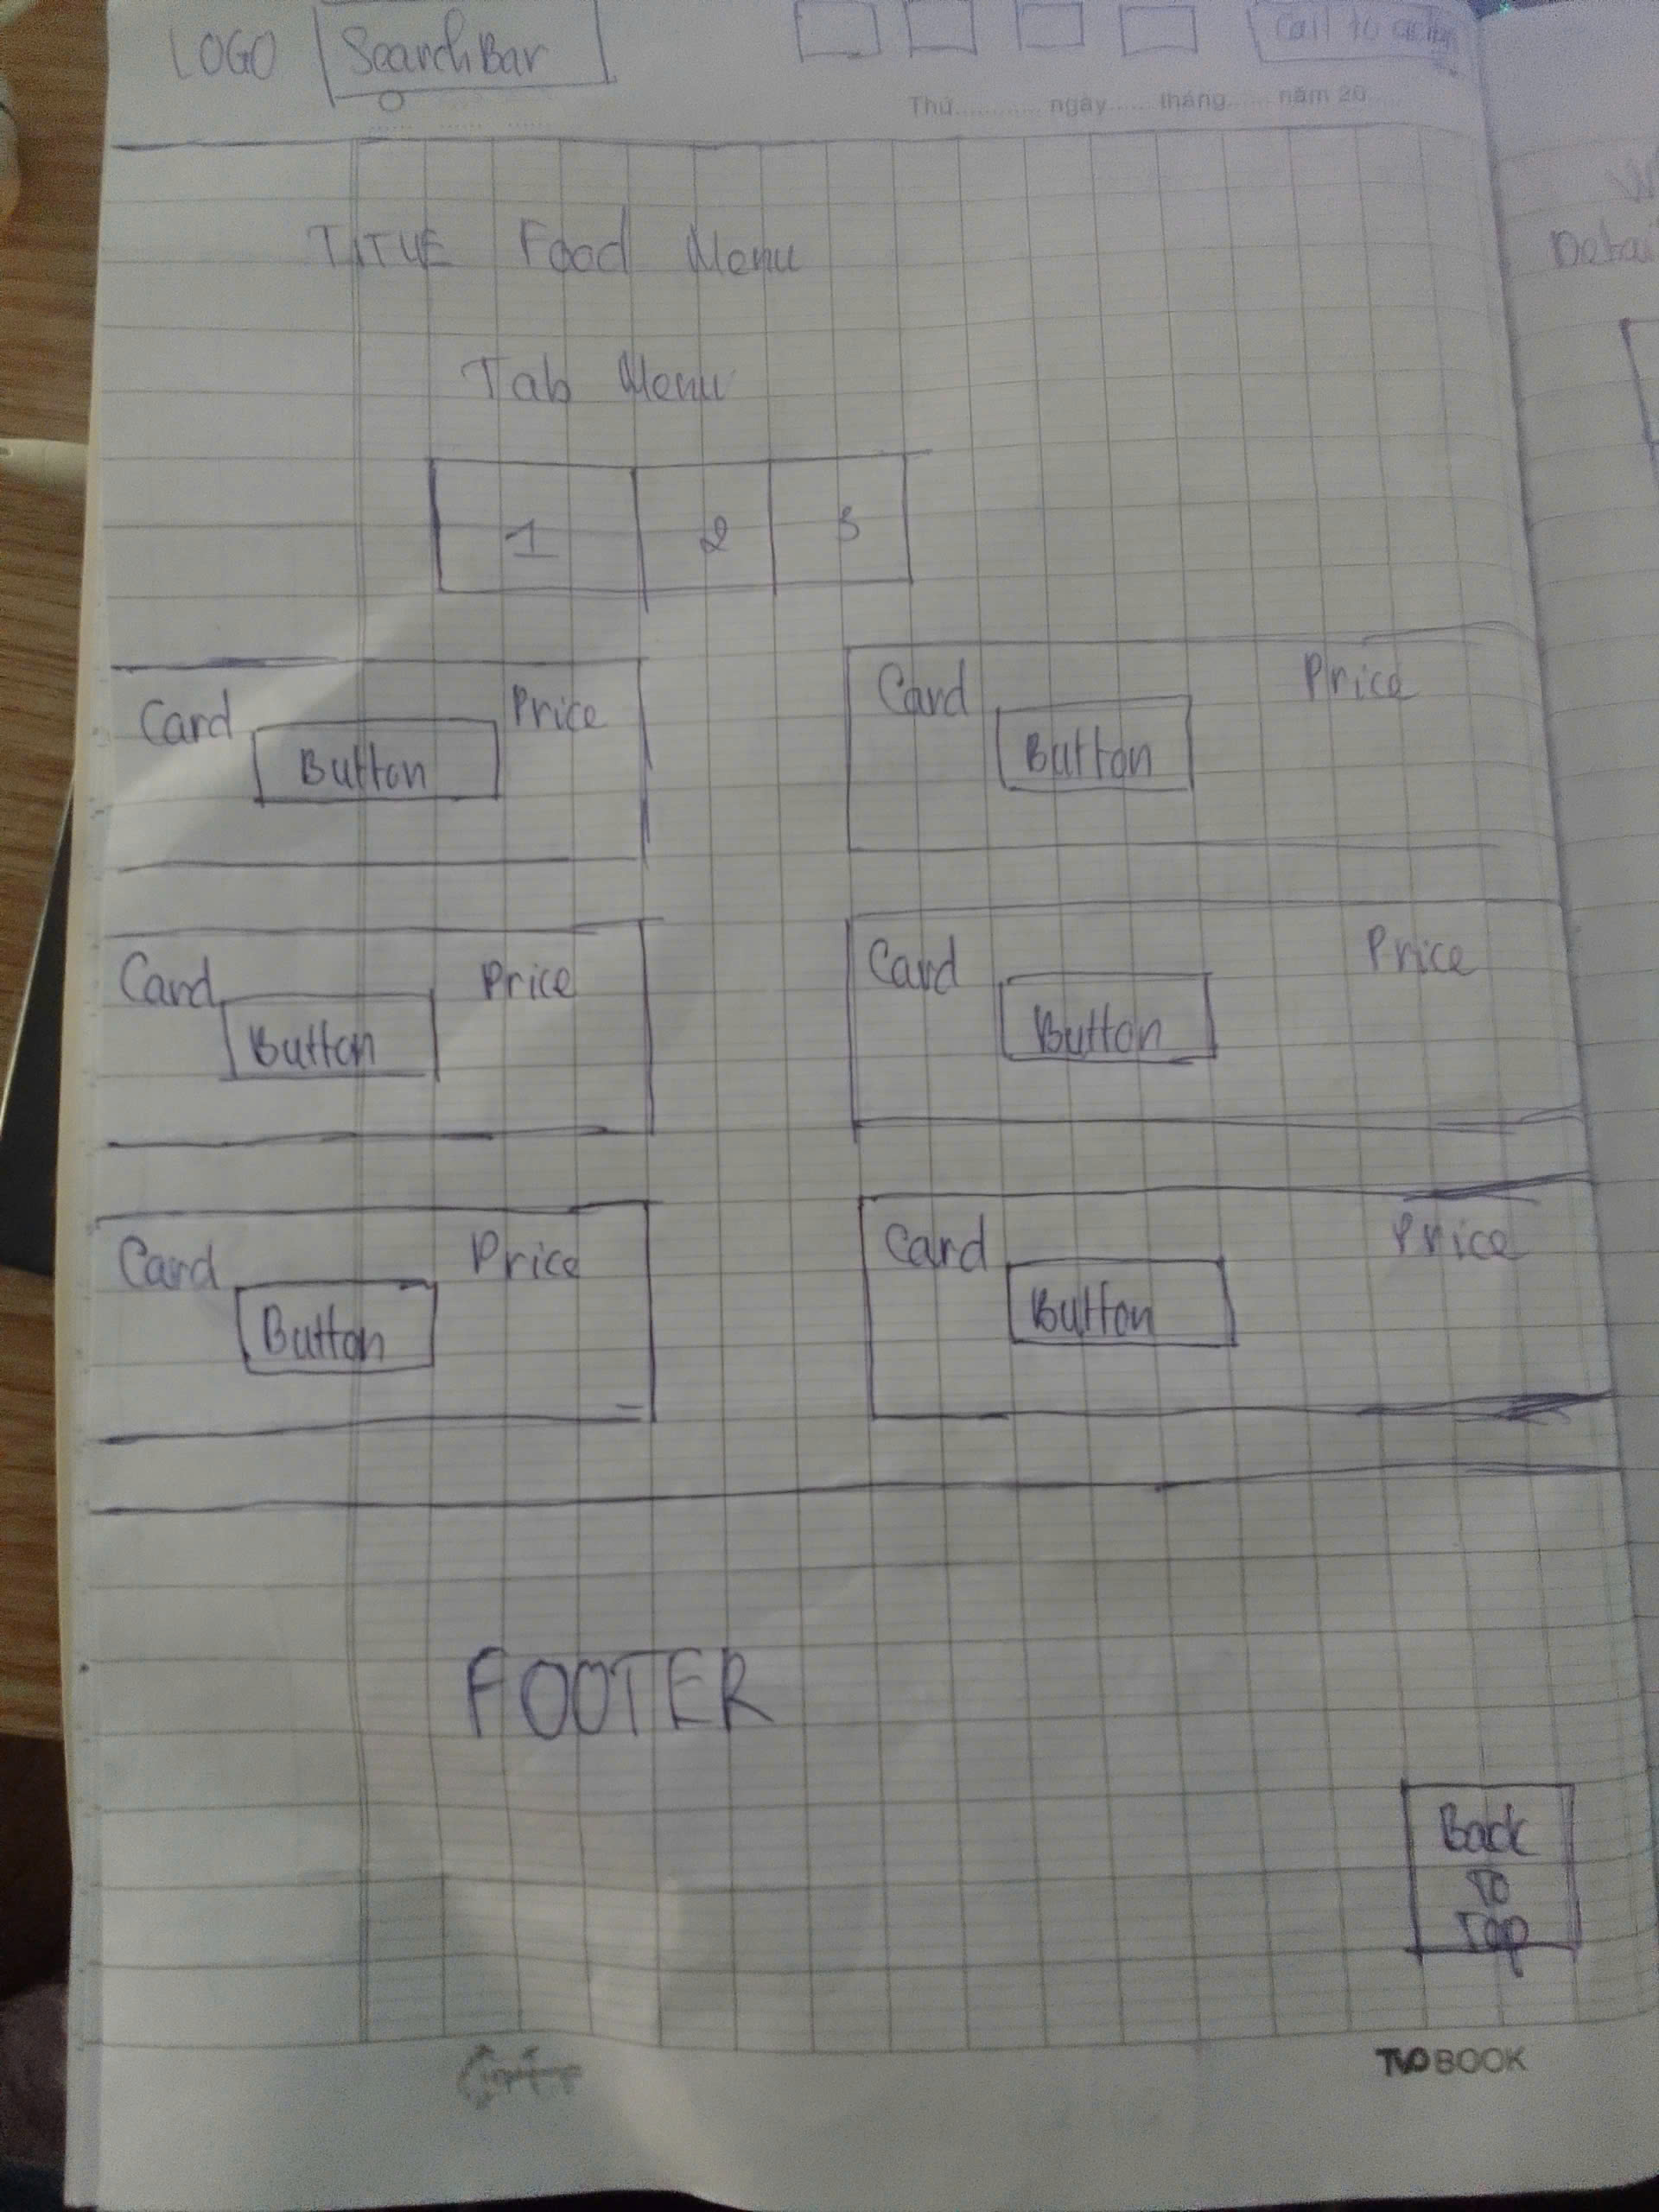 LOGO Search Bar Call to action
Thứ............ ngày...... tháng...... năm 20......
TITLE Food Menu
Tab Menu
1 2 3
Card Button Price Card Button Price
Card Button Price Card Button Price
Card Button Price Card Button Price
FOOTER
Back
To
Top
TVO BOOK
Detai